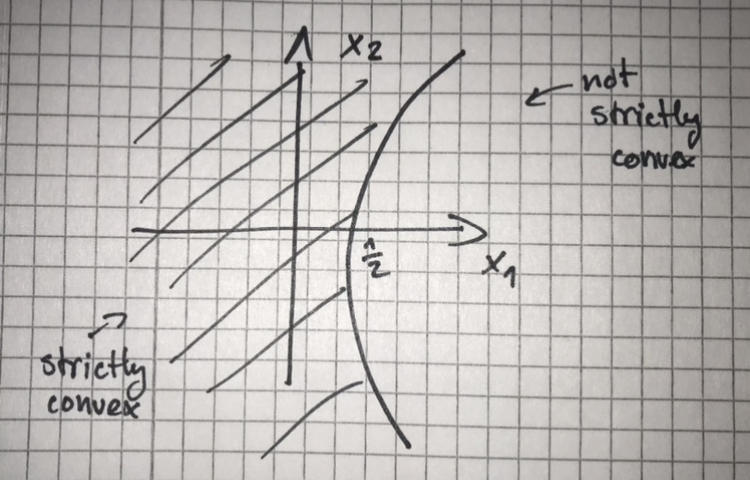 x2
not
strictly
convex
1/2
x1
strictly
convex